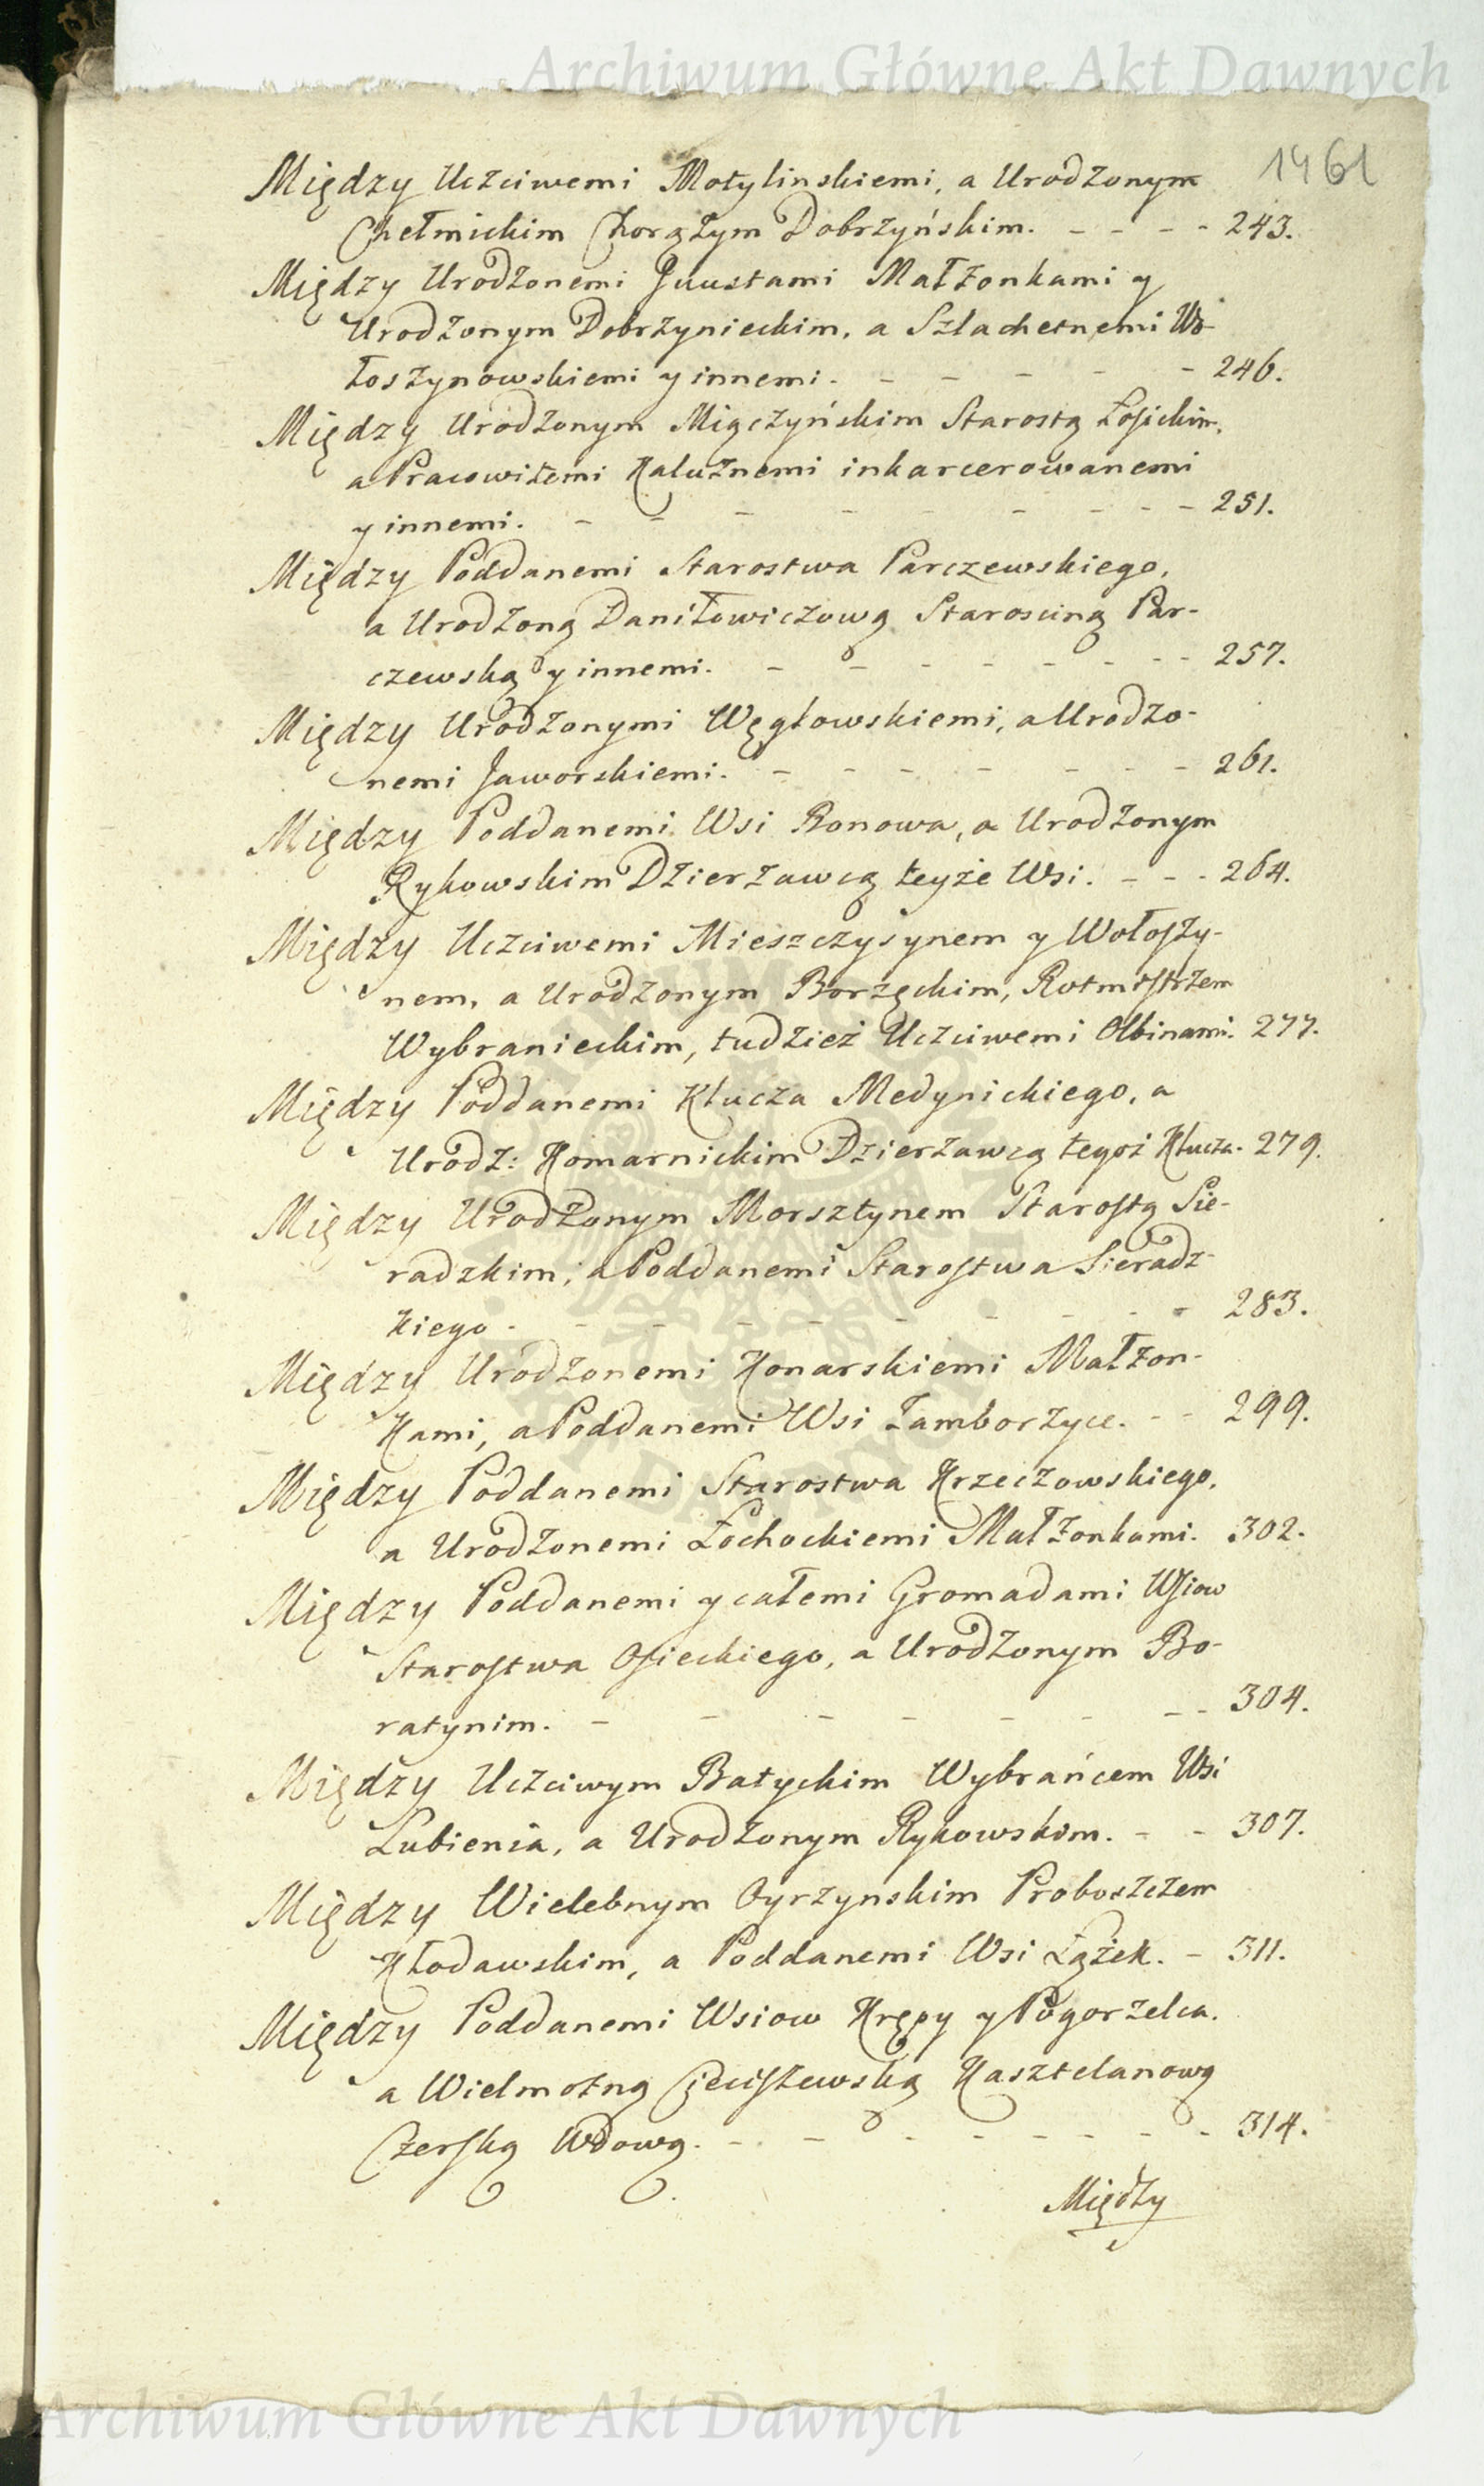 Archiwum Główne Akt Dawnych
1461
Między Uczciwemi Motylinskiemi, a Urodzonym
Chełmickim Chorążym Dobrzyńskim. - - - - 243.
Między Urodzonemi Juustami Małżonkami y
Urodzonym Dobrzynieckim, a Szlachetnemi Wo-
łoszynowskiemi y innemi. - - - - - 246.
Między Urodzonym Miączyńskim Starostą Łosickim,
a Pracowitemi Kałużnemi inkarcerowanemi
y innemi. - - - - - - - - - 251.
Między Poddanemi Starostwa Parczewskiego,
a Urodzoną Daniłowiczową Starosciną Par-
czewską y innemi. - - - - - - - - 257.
Między Urodzonymi Węgłowskiemi, a Urodzo-
nemi Jaworskiemi. - - - - - - - - 261.
Między Poddanemi Wsi Ronowa, a Urodzonym
Rykowskim Dzierzawcą teyże Wsi. - - - 264.
Między Uczciwemi Mieszczysynem y Wołoszy-
nem, a Urodzonym Borzęckim, Rotmistrzem
Wybranieckim, tudzież Uczciwemi Olbinami. 277.
Między Poddanemi Klucza Medynickiego, a
Urodz: Komarnickim Dzierzawcą tegoż Klucza. 279.
Między Urodzonym Morsztynem Starostą Sie-
radzkim, a Poddanemi Starostwa Sieradz-
kiego. - - - - - - - - - 283.
Między Urodzonemi Konarskiemi Małżon-
kami, a Poddanemi Wsi Tamborzyce. - - 299.
Między Poddanemi Starostwa Krzeczowskiego,
a Urodzonemi Łochockiemi Małżonkami. 302.
Między Poddanemi y całemi Gromadami Wsiow
Starostwa Osieckiego, a Urodzonym Bo-
ratynim. - - - - - - - - 304.
Między Uczciwym Batyckim Wybrańcem Wsi
Lubienia, a Urodzonym Rykowskim. - - 307.
Między Wielebnym Oyrzynskim Proboszczem
Kłodawskim, a Poddanemi Wsi Łążek. - 311.
Między Poddanemi Wsiow Krępy y Pogorzelca.
a Wielmożną Cieciszewską Kasztelanową
Czerską Wdową. - - - - - - - 314.
Między
Archiwum Główne Akt Dawnych